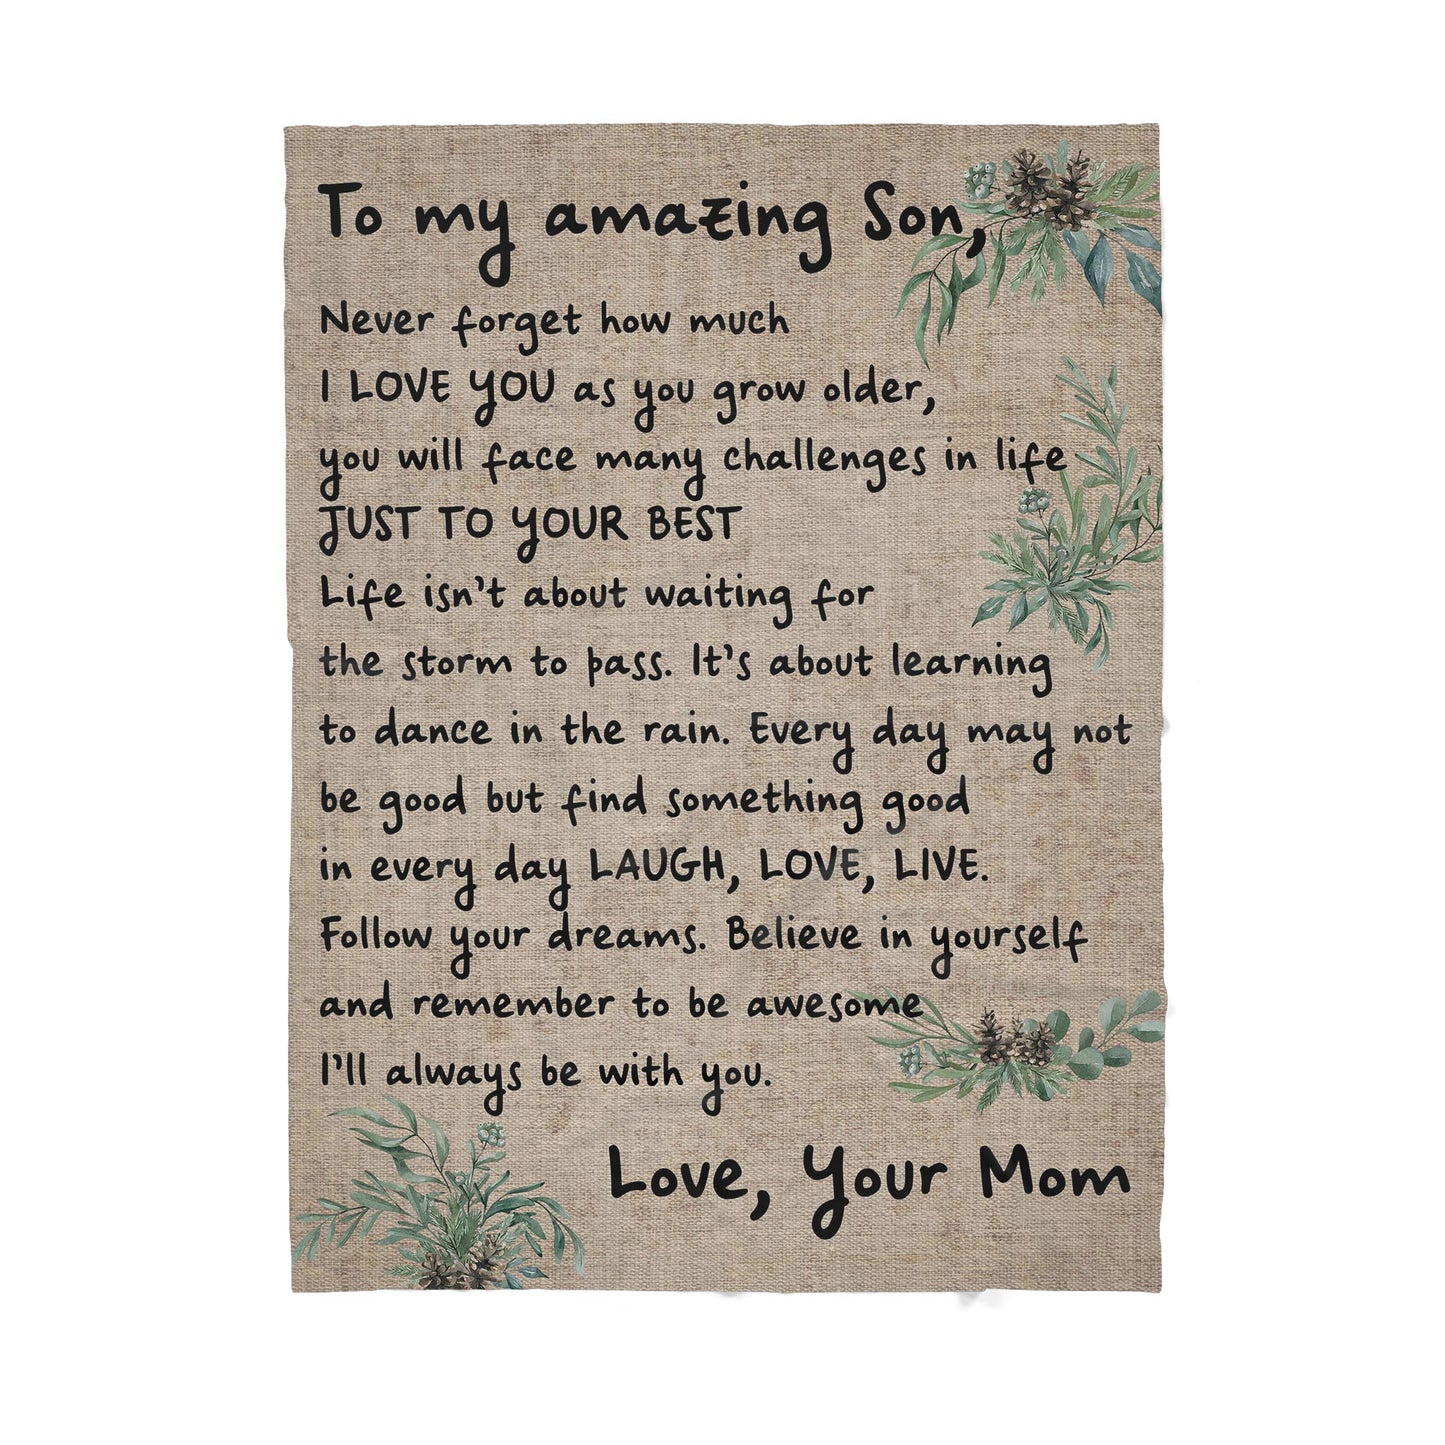 To my amazing Son,
Never forget how much
I LOVE YOU as you grow older,
you will face many challenges in life
JUST TO YOUR BEST
Life isn't about waiting for
the storm to pass. It's about learning
to dance in the rain. Every day may not
be good but find something good
in every day LAUGH, LOVE, LIVE.
Follow your dreams. Believe in yourself
and remember to be awesome
I'll always be with you.
Love, Your Mom